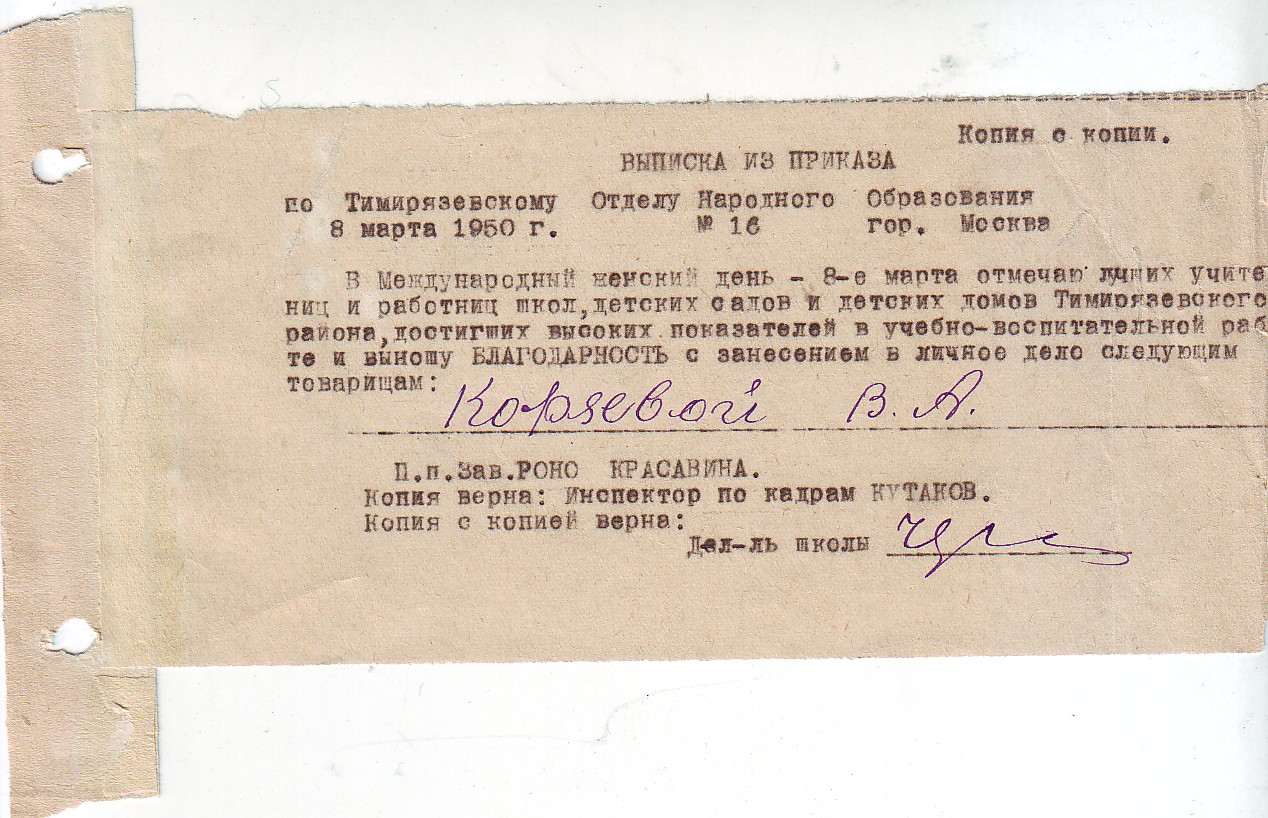 Копия с копии.
ВЫПИСКА ИЗ ПРИКАЗА
по Тимирязевскому Отделу Народного Образования
8 марта 1950 г. № 16 гор. Москва
В Международный женский день - 8-е марта отмечаю лучших учите
ниц и работниц школ,детских садов и детских домов Тимирязевского
района,достигших высоких показателей в учебно-воспитательной раб
те и выношу БЛАГОДАРНОСТЬ с занесением в личное дело следующим
товарищам:
Корзевой В. А.
П.п.Зав.РОНО КРАСАВИНА.
Копия верна: Инспектор по кадрам КУТАКОВ.
Копия с копией верна:
Дел-ль школы